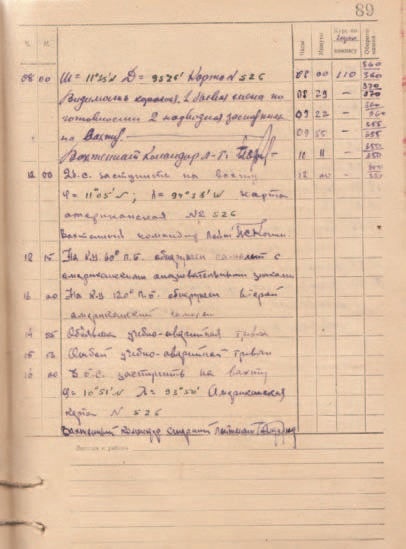 89
Ч. М. Часы Минуты Курс по компасу Обороты
08 00 Ш = 11°25'N Д = 95°26' Карта N 526 08 00 110 360
Видимость хорошая, 2 боевая смена по 08 29 — 370
готовности 2 надводная заступила 09 22 — 360
на вахту 09 55 — 355
Вахтенный Командир Л-т 10 11 — 350
12 00 заступить на вахту 12 00 —
φ = 11°05'N; λ = 94°38'W карта
американская № 526
Вахтенный командир Лейт
12 15 На К.У. 60° П.Б. обнаружен самолет с
американскими опознавательными знаками
На К.У. 120° П.Б. обнаружен второй
американский самолет
14 55 Объявлена учебно-аварийная тревога
15 Отбой учебно-аварийной тревоги
16 00 Б.С. заступить на вахту
φ = 10°51'N λ = 93°50' Американская
карта N 526
Вахтенный командир старший лейтенант